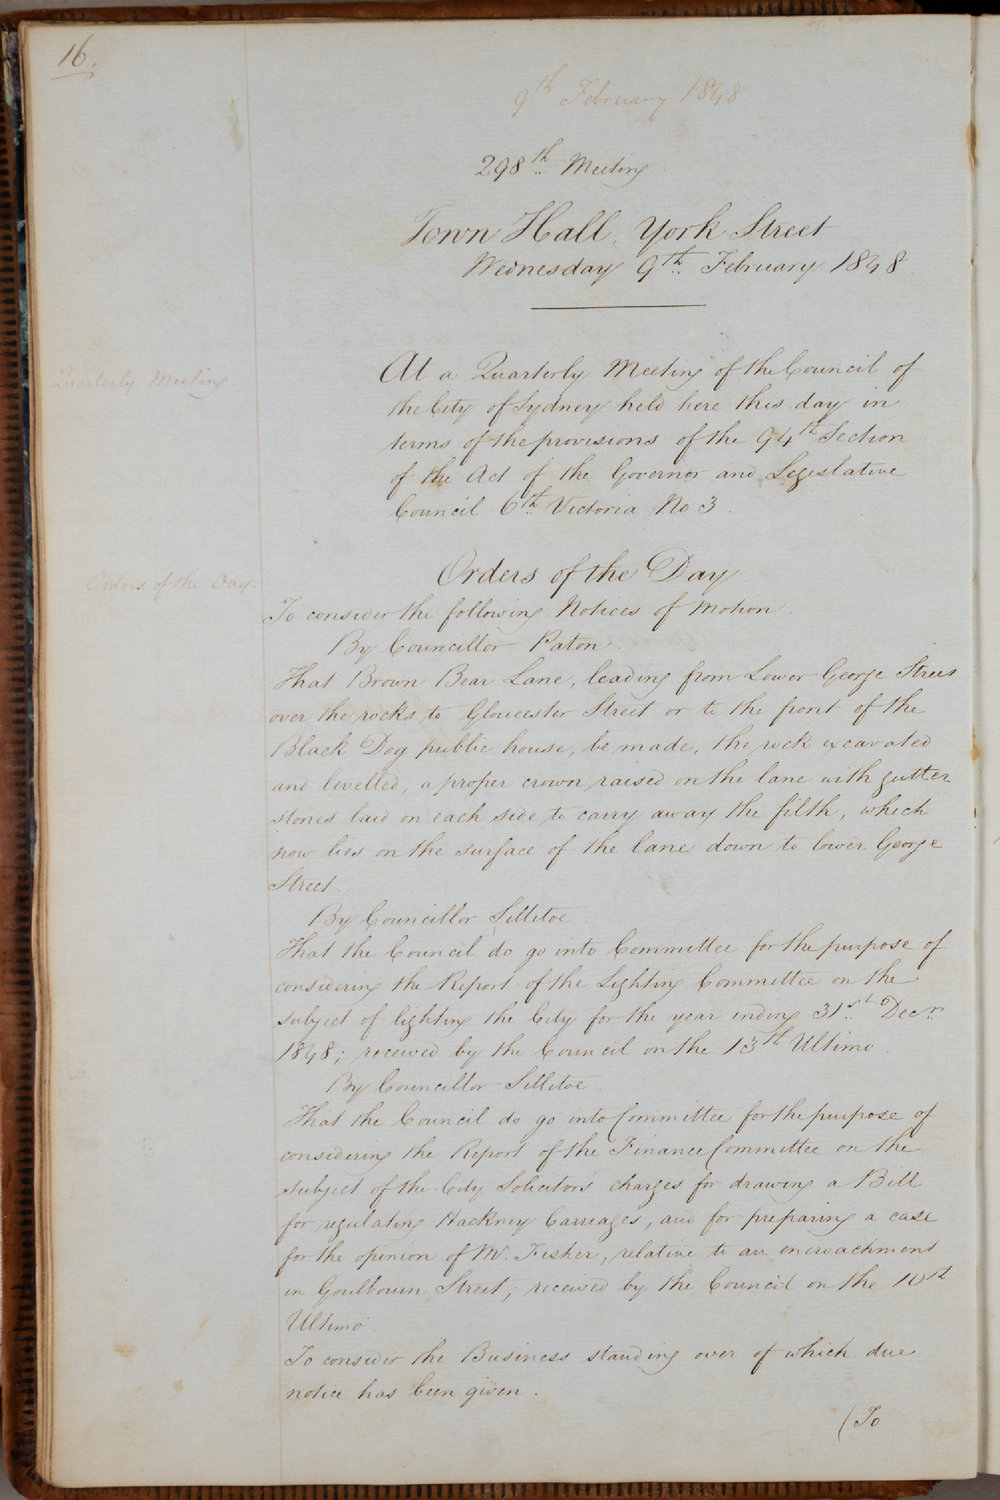 16.
9th February 1848
298th Meeting
Town Hall, York Street
Wednesday 9th February 1848
Quarterly Meeting.
At a Quarterly Meeting of the Council of
the City of Sydney held here this day in
terms of the provisions of the 94th Section
of the Act of the Governor and Legislative
Council 6th Victoria No 3.
Orders of the Day
Orders of the Day.
To consider the following Notices of Motion.
By Councillor Paton.
That Brown Bear Lane, leading from Lower George Street
over the rocks to Gloucester Street or to the front of the
Black Dog public house, be made, the rock excavated
and levelled, a proper crown raised on the lane with gutter
stones laid on each side to carry away the filth, which
now lies on the surface of the lane down to lower George
Street.
By Councillor Sillitoe
That the Council do go into Committee for the purpose of
considering the Report of the Lighting Committee on the
subject of lighting the City for the year ending 31st Decr
1848; received by the Council on the 13th Ultimo.
By Councillor Sillitoe.
That the Council do go into Committee for the purpose of
considering the Report of the Finance Committee on the
subject of the City Solicitors charges for drawing a Bill
for regulating Hackney Carriages, and for preparing a case
for the opinion of Mr. Fisher, relative to an encroachment
in Goulbourn Street, received by the Council on the 10th
Ultimo.
To consider the Business standing over of which due
notice has been given.
(To